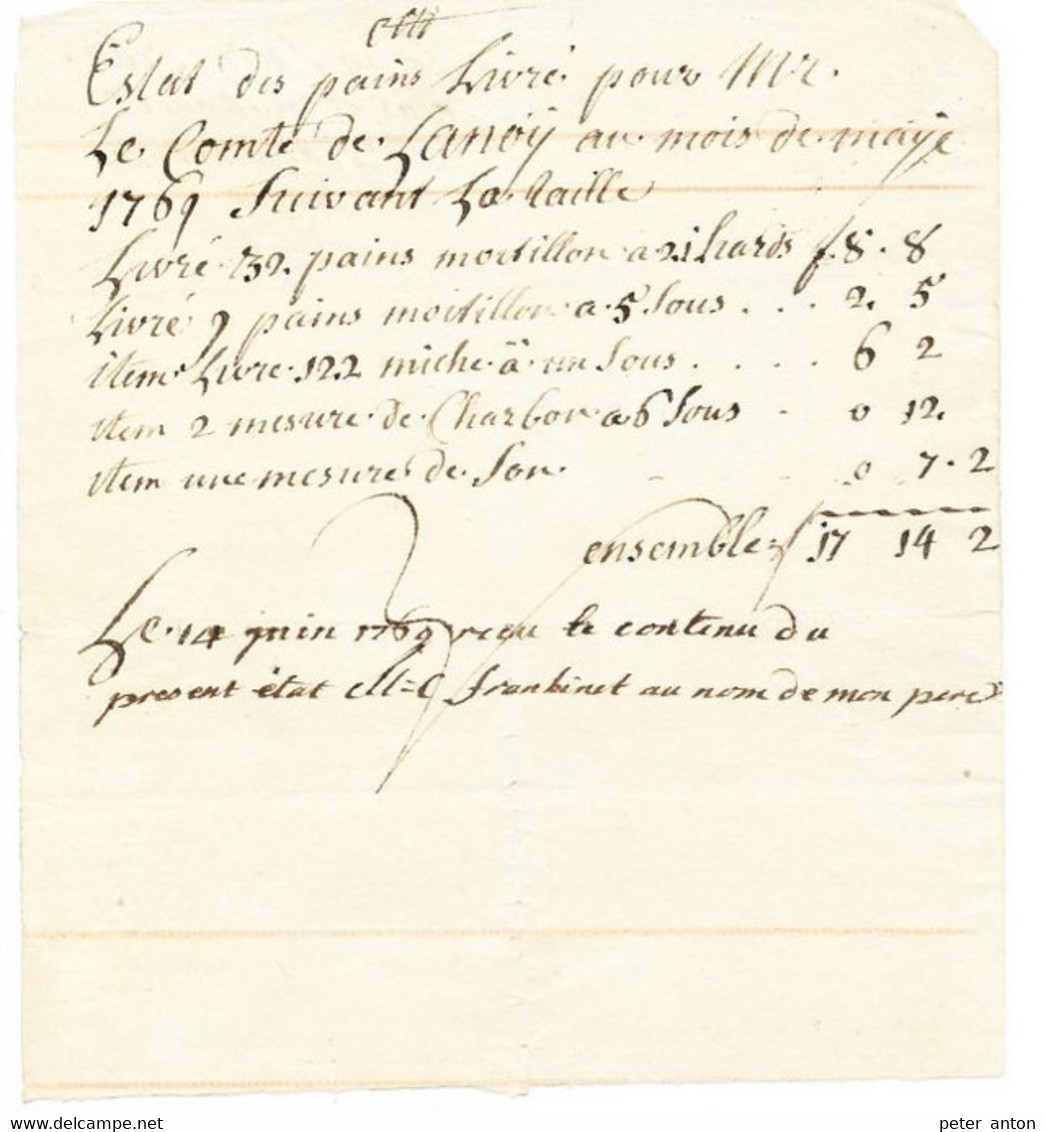 Estat des pains Livré pour Mr.
Le Comte de Lanoÿ au mois de maÿe
1769 Suivant La taille
Livré 32 pains moitillon a 21 liards f 8 . 8
Livré 9 pains moitillon a 5 sous . . . 2. 5
item Livre 122 miche a un sous . . . . 6 2
item 2 mesure de Charbon a 6 sous - 0 12.
item une mesure de son - - - 0 7 . 2
ensemble f 17 14 2
Le 14 juin 1769 reçu le contenu du
present état franbinet au nom de mon pere
peter anton